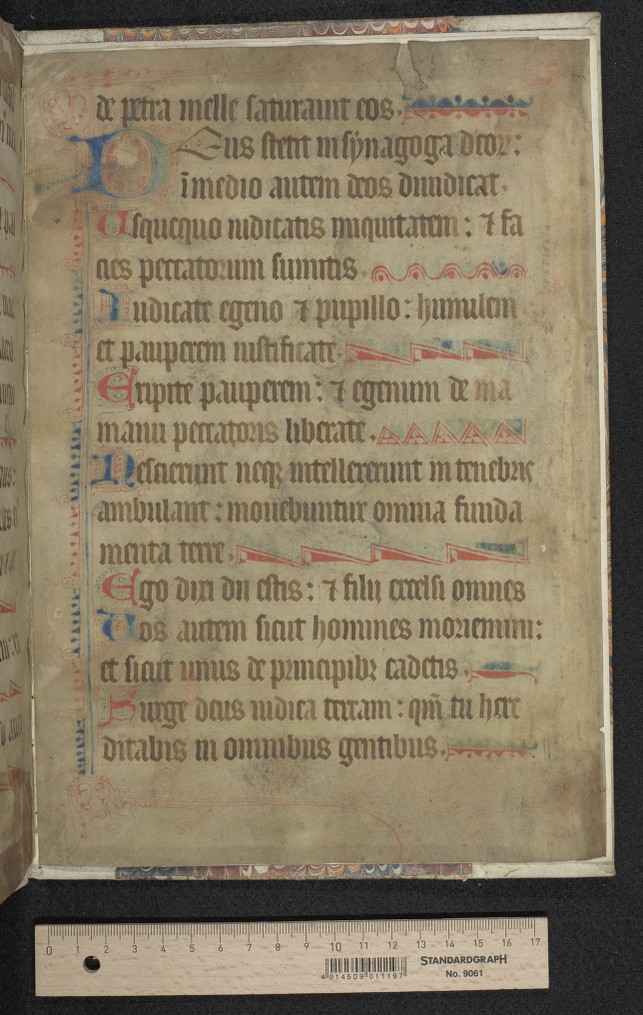 de petra melle saturauit eos.
Deus stetit in synagoga deoꝝ:
ī medio autem deos diiudicat.
Usquequo iudicatis iniquitatem: ⁊ fa
cies peccatorum sumitis.
Iudicate egeno ⁊ pupillo: humilem
et pauperem iustificate.
Eripite pauperem: ⁊ egenum de ma
manu peccatoris liberate.
Nescierunt neqꝫ intellexerunt in tenebris
ambulant: mouebuntur omnia funda
menta terre.
Ego dixi dii estis: ⁊ filii excelsi omnes
Uos autem sicut homines moriemini:
et sicut unus de principibꝫ cadetis.
Surge deus iudica terram: qm̄ tu here
ditabis in omnibus gentibus.
0 1 2 3 4 5 6 7 8 9 10 11 12 13 14 15 16 17
4 014509 011197
STANDARDGRAPH
No. 9061